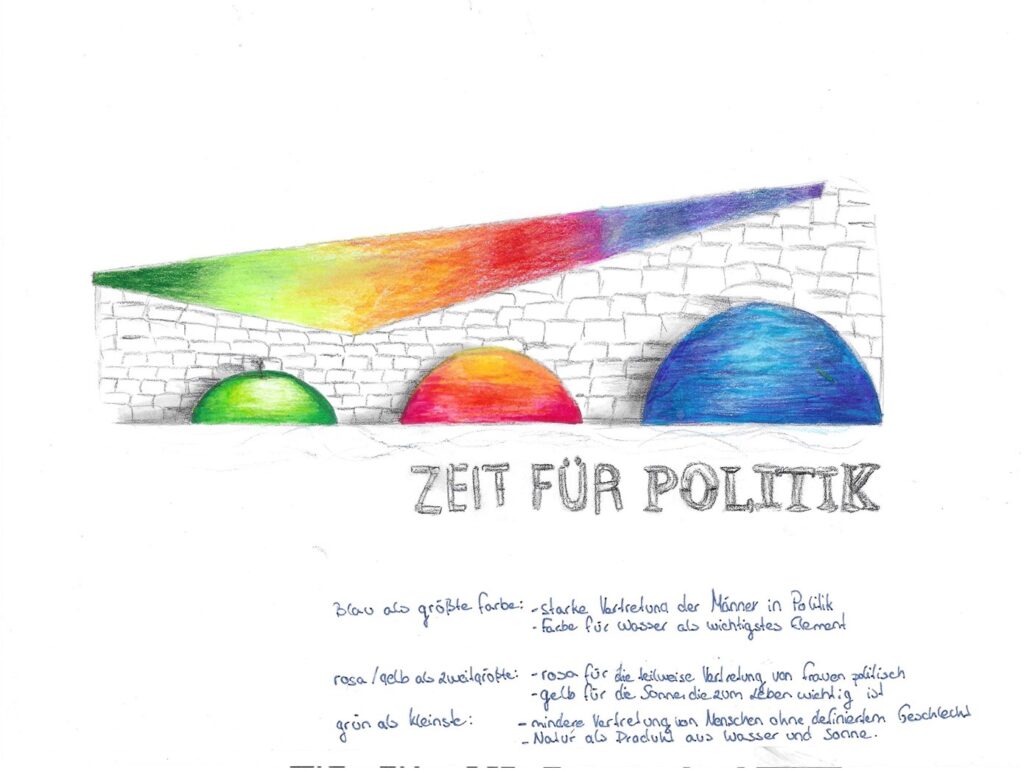 ZEIT FÜR POLITIK
Blau als größte Farbe: - starke Vertretung der Männer in Politik
- Farbe für Wasser als wichtigstes Element
rosa/gelb als zweitgrößte: - rosa für die teilweise Vertretung von Frauen politisch
- gelb für die Sonne, die zum Leben wichtig ist
grün als kleinste: - mindere Vertretung von Menschen ohne definiertem Geschlecht
- Natur als Produkt aus Wasser und Sonne.